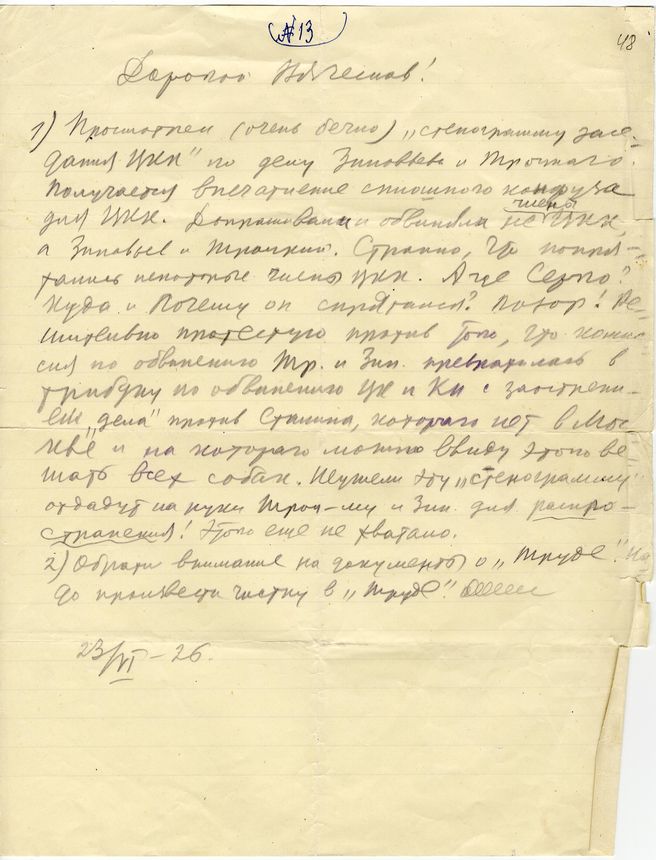 № 13
48
Дорогой Вячеслав!
1) Просмотрел (очень бегло) „стенограмму засе-
дания ЦКК" по делу Зиновьева и Троцкого.
Получается впечатление сплошного конфуза
для ЦКК. Допрашивали и обвиняли не члены ЦКК,
а Зиновьев и Троцкий. Странно, что попря-
тались некоторые члены ЦКК. А где Серго?
Куда и почему он спрятался? Позор! Ре-
шительно протестую против того, что комис-
сия по обвинению Тр. и Зин. превратилась в
трибуну по обвинению ЦК и КИ с заострени-
ем „дела" против Сталина, которого нет в Мос
кве и на которого можно ввиду этого ве
шать всех собак. Неужели эту „стенограмму"
отдадут на руки Троц-му и Зин. для распро-
странения! Этого еще не хватало.
2) Обрати внимание на документы о „Труде". На
до произвести чистку в „Труде".
23/VI – 26.